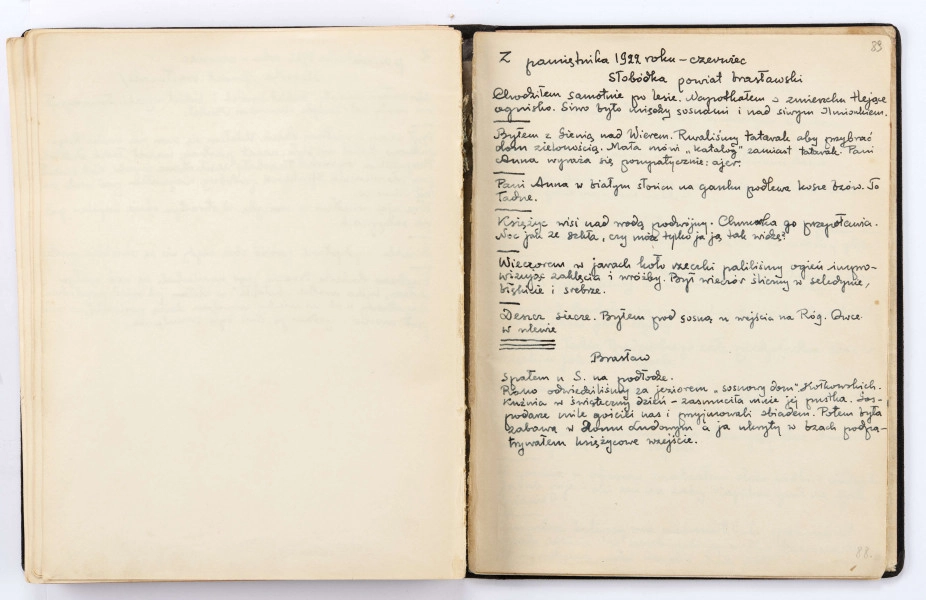 89
Z pamiętnika 1922 roku – czerwiec
Słobódka powiat brasławski
Chodziłem samotnie po lesie. Napotkałem o zmierzchu tlejące
ognisko. Siwo było między sosnami i nad siwym
Byłem z Gienią nad Wierem. Rwaliśmy tatarak aby przybrać
dom zielonością. Mała mówi „katalog" zamiast tatarak. Pani
Anna wyraża się poncyratycznie: ajer.
Pani Anna w białym słońcu na ganku podlewa kosze bzów. To
ładne.
Księżyc wisi nad wodą podwójny. Chmurka go przepoławia.
Noc jak ze szkła, czy może tylko ja ją tak widzę?
Wieczorem w jarach koło rzeczki paliliśmy ogień impro-
wizując zaklęcia i wróżby. Był wieczór śliczny w seledynie,
błękicie i srebrze.
Deszcz siecze. Byłem pod sosną u wejścia na Róg. Owce
w ulewie
Brasław
Spałem u S. na podłodze.
Rano odwiedziliśmy za jeziorem „sosnowy dom"
Kuźnia w świąteczny dzień – zasmuciła mnie jej pustka. Gos-
podarze mile gościli nas i przyjmowali obiadem. Potem była
zabawa w Domu Ludowym a ja ukryty w bzach podpa-
trywałem księżycowe wzejście.
88.